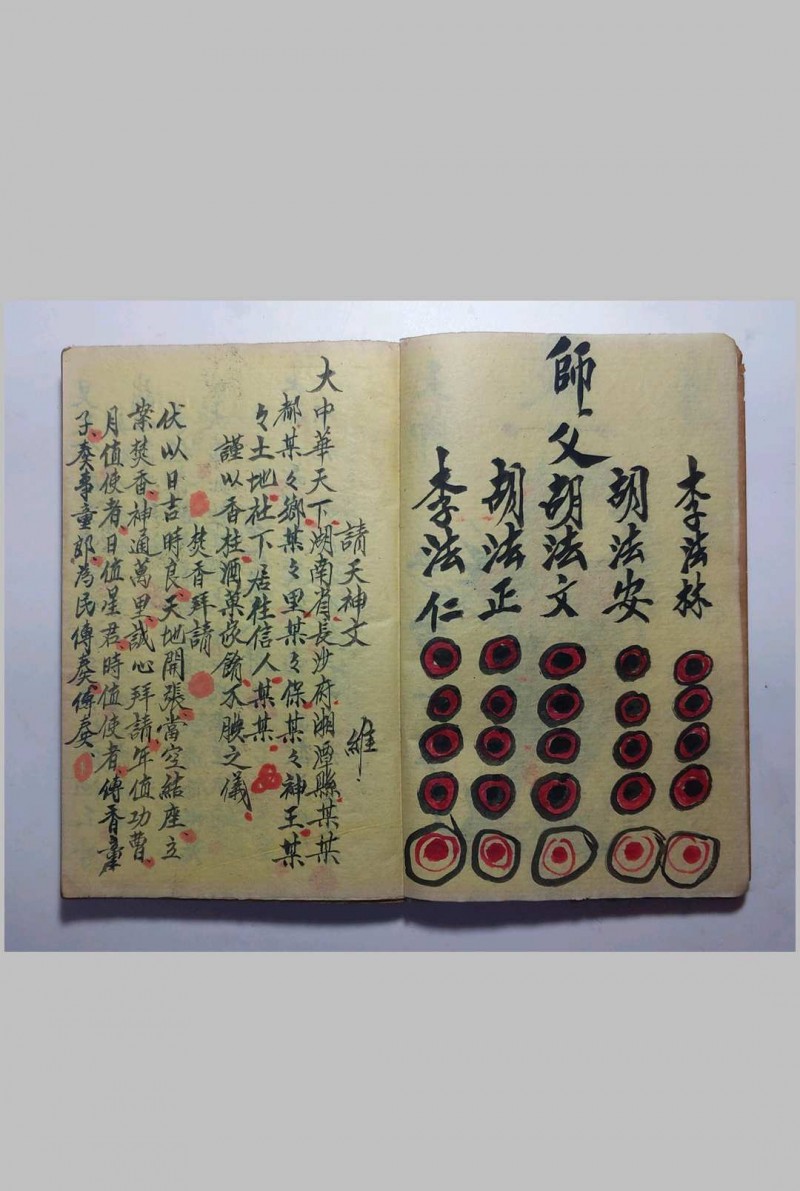 師父
李法林
胡法安
胡法文
胡法正
李法仁
請天神文 維
大中華天下湖南省長沙府湘潭縣某某
都某々鄉某々里某々保某々神王某
々土地社下居住信人某某
謹以香柱酒菓家餚不腆之儀
焚香拜請
伏以日吉時良天地開張當空結座立
案焚香神通萬里誠心拜請年值功曹
月值使者日值星君時值使者傳香童
子奏事童郎為民傳奏傳奏